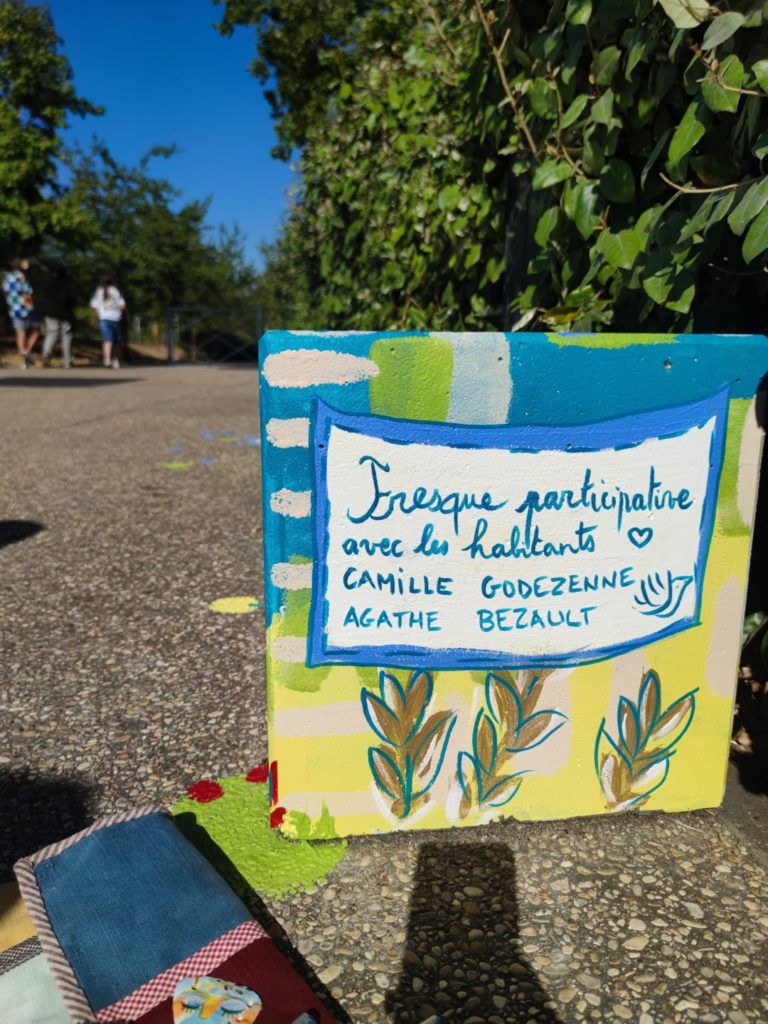 Fresque participative
avec les habitants
CAMILLE GODEZENNE
AGATHE BEZAULT